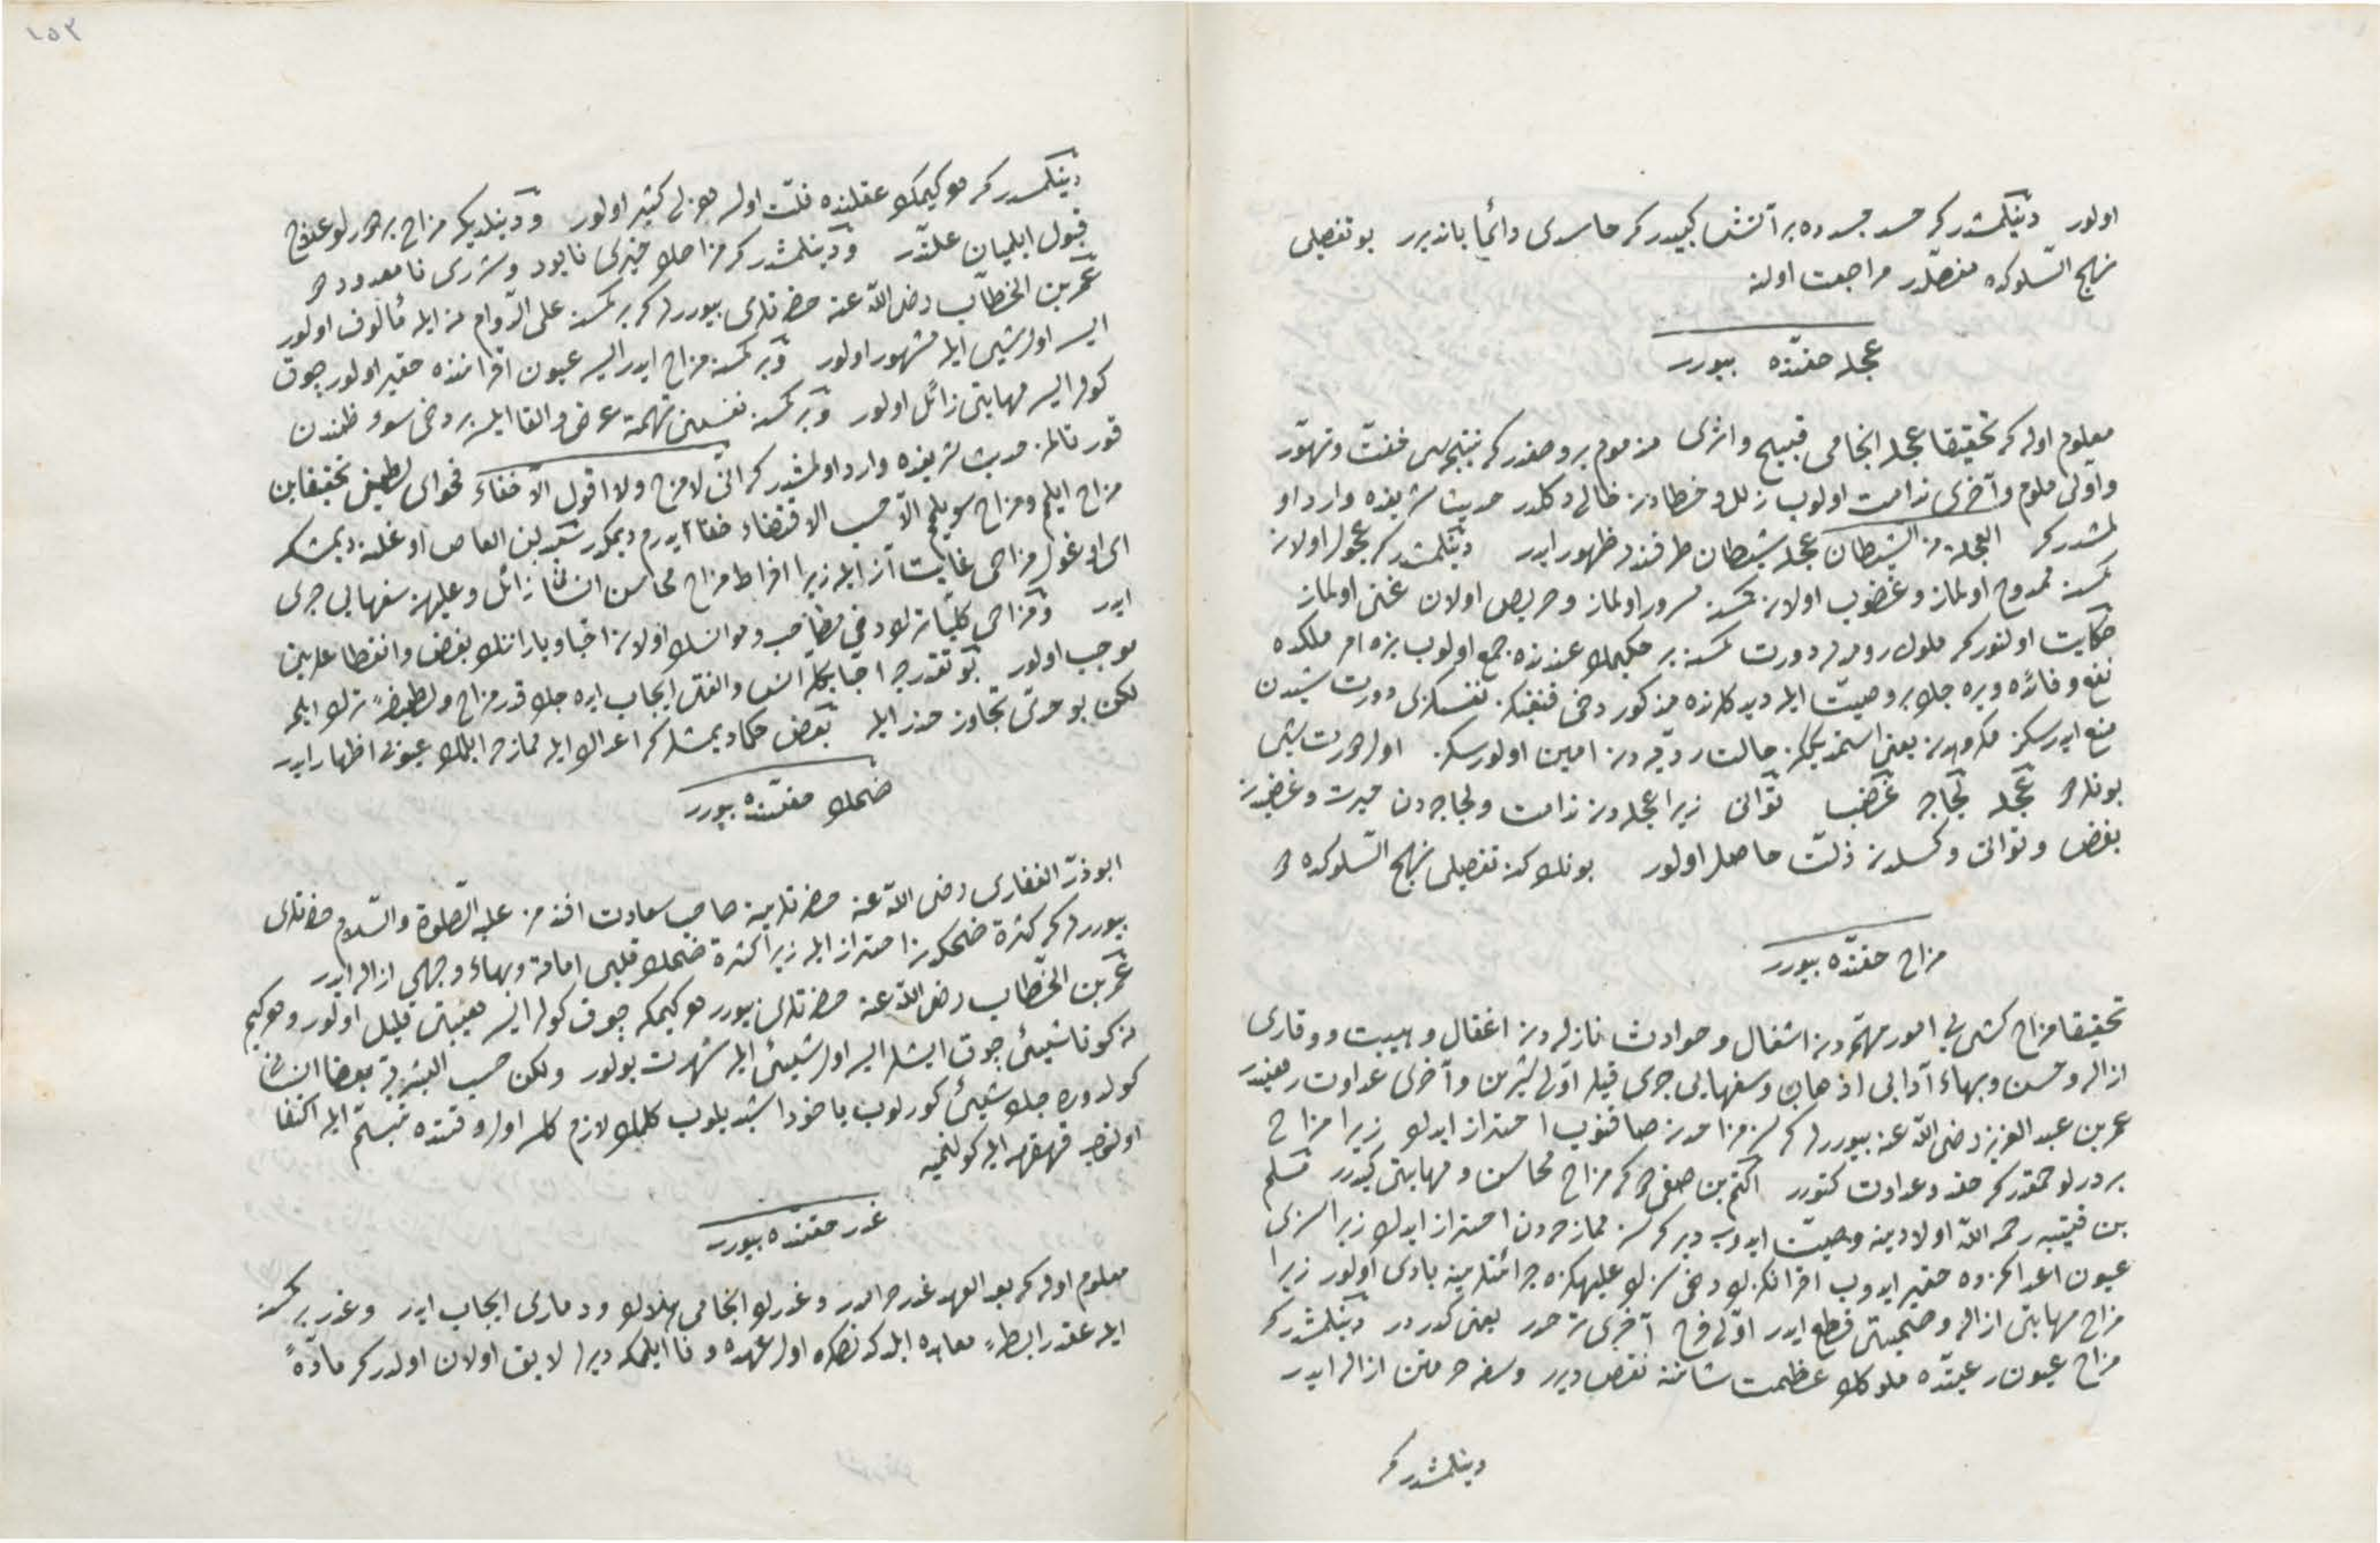 اولور دینلمشدر كه حسد جسدده بر آتش كبیدر كه حاسدی دائما یاندیرر بو تفصیلی
نهج السلوكده مفصلدر مراجعت اولنه
عجله حقنده بیورر
معلوم اوله كه تحقیقا عجله انجامی قبیح واثری مذموم بر وصفدر كه نتیجه سی خفت وتهور
واولی ملوم وآخری ندامت اولوب زلل وخطادن خالی دكلدر حدیث شریفده وارد او
لمشدر كه العجلة من الشیطان عجله شیطان طرفندن ظهور ایدر دینلمشدر كه عجول اولان
كمسنه ممدوح اولماز وغضوب اولان كمسنه مسرور اولماز وحریص اولان غنی اولماز
حكایت اولنور كه ملوك رومدن دورت كمسنه بر حكیمك عندنده جمع اولوب بزه امر ملكده
نفع وفائده ویره جك بر وصیت ایله دیدكلرنده مذكور دخی نفسكزی دورت شیدن
منع ایدرسكز مكروهدن یعنی استمدیككز حالت ردیه دن امین اولورسكز اول دورت شی
بونلردر عجله لجاجه غضب توانی زیرا عجله دن ندامت ولجاجه دن حیرت وغضبدن
بغض وتوانی وكسلدن ذلت حاصل اولور بونلرك تفصیلی نهج السلوكده در
مزاح حقنده بیورر
تحقیقا مزاح كشی یی امور مهمه دن اشغال وحوادث نازله دن اغفال وهیبت ووقاری
ازاله وحسن وبهاء آدابی اذهاب وسفهایی جری قیلر اولی شیرین وآخری عداوت
عمر بن عبد العزیز رضی الله عنه بیوررلر كه سز مزاحدن صاقنوب احتراز ایدك زیرا مزاح
بر درلو حمقدر كه حقد وعداوت كتورر اكثم بن صیفی در كه مزاح محاسن ومهابتی كیدرر مسلم
بن قتیبه رحمه الله اولادینه وصیت ایدوب دیر كه سز ممازحه دن احتراز ایدك زیرا سزی
عیون اعداكزده حقیر ایدوب اقرانكزك دخی سزك علیهكزه جرأتلرینه بادی اولور زیرا
مزاح مهابتی ازاله وصحبتی قطع ایدر اولی فرح آخری ترحدر یعنی كدردر دینلمشدر كه
مزاح عیون رعیتده ملوكك عظمت شاننه نقص ویرر وسفه حرمتن ازاله ایدر
دینلمشدر كه
١٥٢
دینلمشدر كه هر كیمك عقلنده قلت اوله هزلی كثیر اولور ودینلدیكه مزاح بر درلو
قبول ودینلمشدر كه مزاحك خیری نابود وشری نامعدوددر
عمر بن الخطاب رضی الله عنه حضرتلری بیوررلر كه بر كمسنه علی الدوام نه ایله مألوف اولور
ایسه اول شی ایله مشهور اولور وبر كمسنه مزاح ایدر ایسه عیون اقراننده حقیر اولور چوق
كولر ایسه مهابتی زائل اولور وبر كمسنه نفسنی تهمته عرض والقا ایلسه بر دخی سوء ظندن
قورتالمز حدیث شریفده وارد اولمشدر كه انی لامزح ولا اقول الا حقا فحوای لطیفی تحقیقا بن
مزاح ایلم ومزاح سویلم الا حسب الاقتضاء حقا ایدرم دیمكدر سعید بن العاص اوغلنه دیمشكه
ای اوغول مزاحی غایت آز ایله زیرا افراط مزاح محاسن انسانی زائل وعلیهنه سفهایی جری
ایدر ومزاحی كلیا ترك دخی مصاحب وموانسك اولان احبا ویارانك بغض وانقطاعلرینی
موجب اولور بو تقدیرجه احبا ایله انس والفتی ایجاب ایده جك قدر مزاح ولطیفه ترك ایلمه
لكن بو حدی تجاوزدن حذر ایله بعض حكما دیمشلر كه اعدا ایله ممازحه ایلمك عیوبی اظهار ایدر
ضحك حقنده بیورر
ابوذر الغفاری رضی الله عنه حضرتلرینه صاحب سعادت افندمز علیه الصلوة والسلام حضرتلری
بیوررلر كه كثرة ضحكدن احتراز ایله زیرا كثرة ضحك قلبی اماته وبهاء وجهی ازاله ایدر
عمر بن الخطاب رضی الله عنه حضرتلری بیورر هر كیمكه چوق كولر ایسه هیبتی قلیل اولور وهر كیم
نه كونا شیئی چوق ایشلر ایسه اول شیئی ایله شهرت بولور ولكن حسب البشریه بعضا انسانی
كولدره جك شیئی كوروب یاخود ایشیدیلوب كلمك لازم كلسه اول وقتده تبسم ایله اكتفا
اولنوب قهقهه ایله كولنمیه
غدر حقنده بیورر
معلوم اوله كه بعد العهد غدر حرامدر وغدرك انجامی هلاك ودماری ایجاب ایدر وغدر بر كمسنه
ایله عقد رابطه معاهده ایلدكدنصكره اول عهده وفا ایلمامكه دیرلر لایق اولان اولدر كه مادة